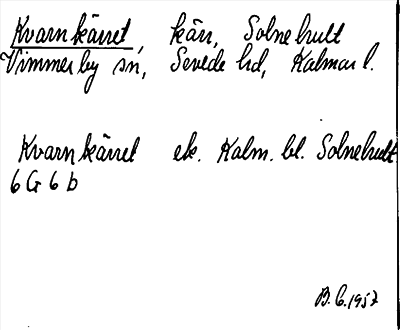 Kvarnkärret, kärr, Solnehult
Vimmerby sn, Sevede hd, Kalmar l.
Kvarnkärret ek. Kalm. bl. Solnehult
6 G 6 b
B. C. 1957